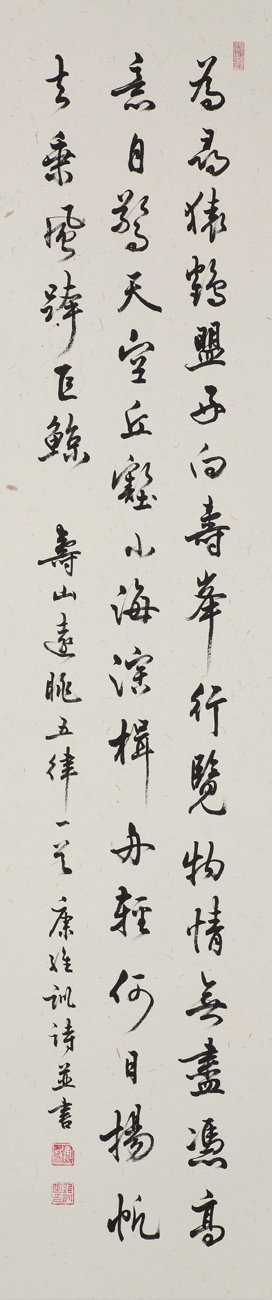 為尋猿鶴盟向壽峯行覽物情無盡憑高
意自驚天空丘壑小海深楫舟輕何日揚帆
去乘風跨巨鯨 壽山遠眺五律一首 康維訓詩並書